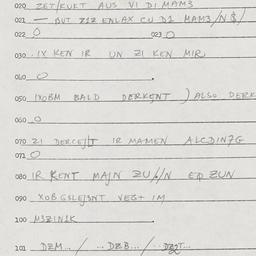 020 ZET/RUFT AUS VI DI MAM3
021 — BUT Z1Z ENLAX CU D1 MAM3/N$/
022 O 023 O
030 . IX KEN IR UN ZI KEN MIR
040 O
050 IXOBM BALD DERKENT ) ALSO DERK
060 O
070 ZI IR MAMEN ALCDIN7G
071 O
080 IR KENT MAJN ZU/IN ZUN
090 XOB GSLEJ3NT VEST IM
100 M3ZIN1K
101 DZM... / ... DZB... /